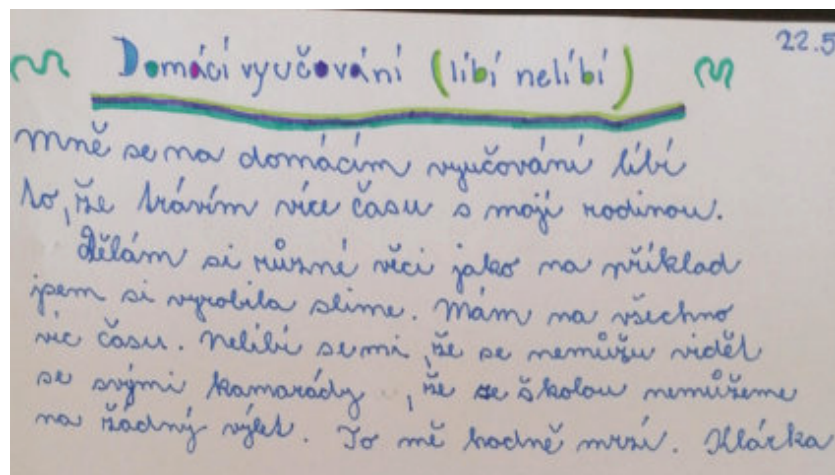 22.5
Domácí vyučování (líbí nelíbí)
Mně se na domácím vyučování líbí
to, že trávím více času s mojí rodinou.
Dělám si různé věci jako na příklad
jsem si vyrobila slime. Mám na všechno
víc času. Nelíbí se mi, že se nemůžu vidět
se svými kamarády, že se školou nemůžeme
na žádný výlet. To mě hodně mrzí. Klárka